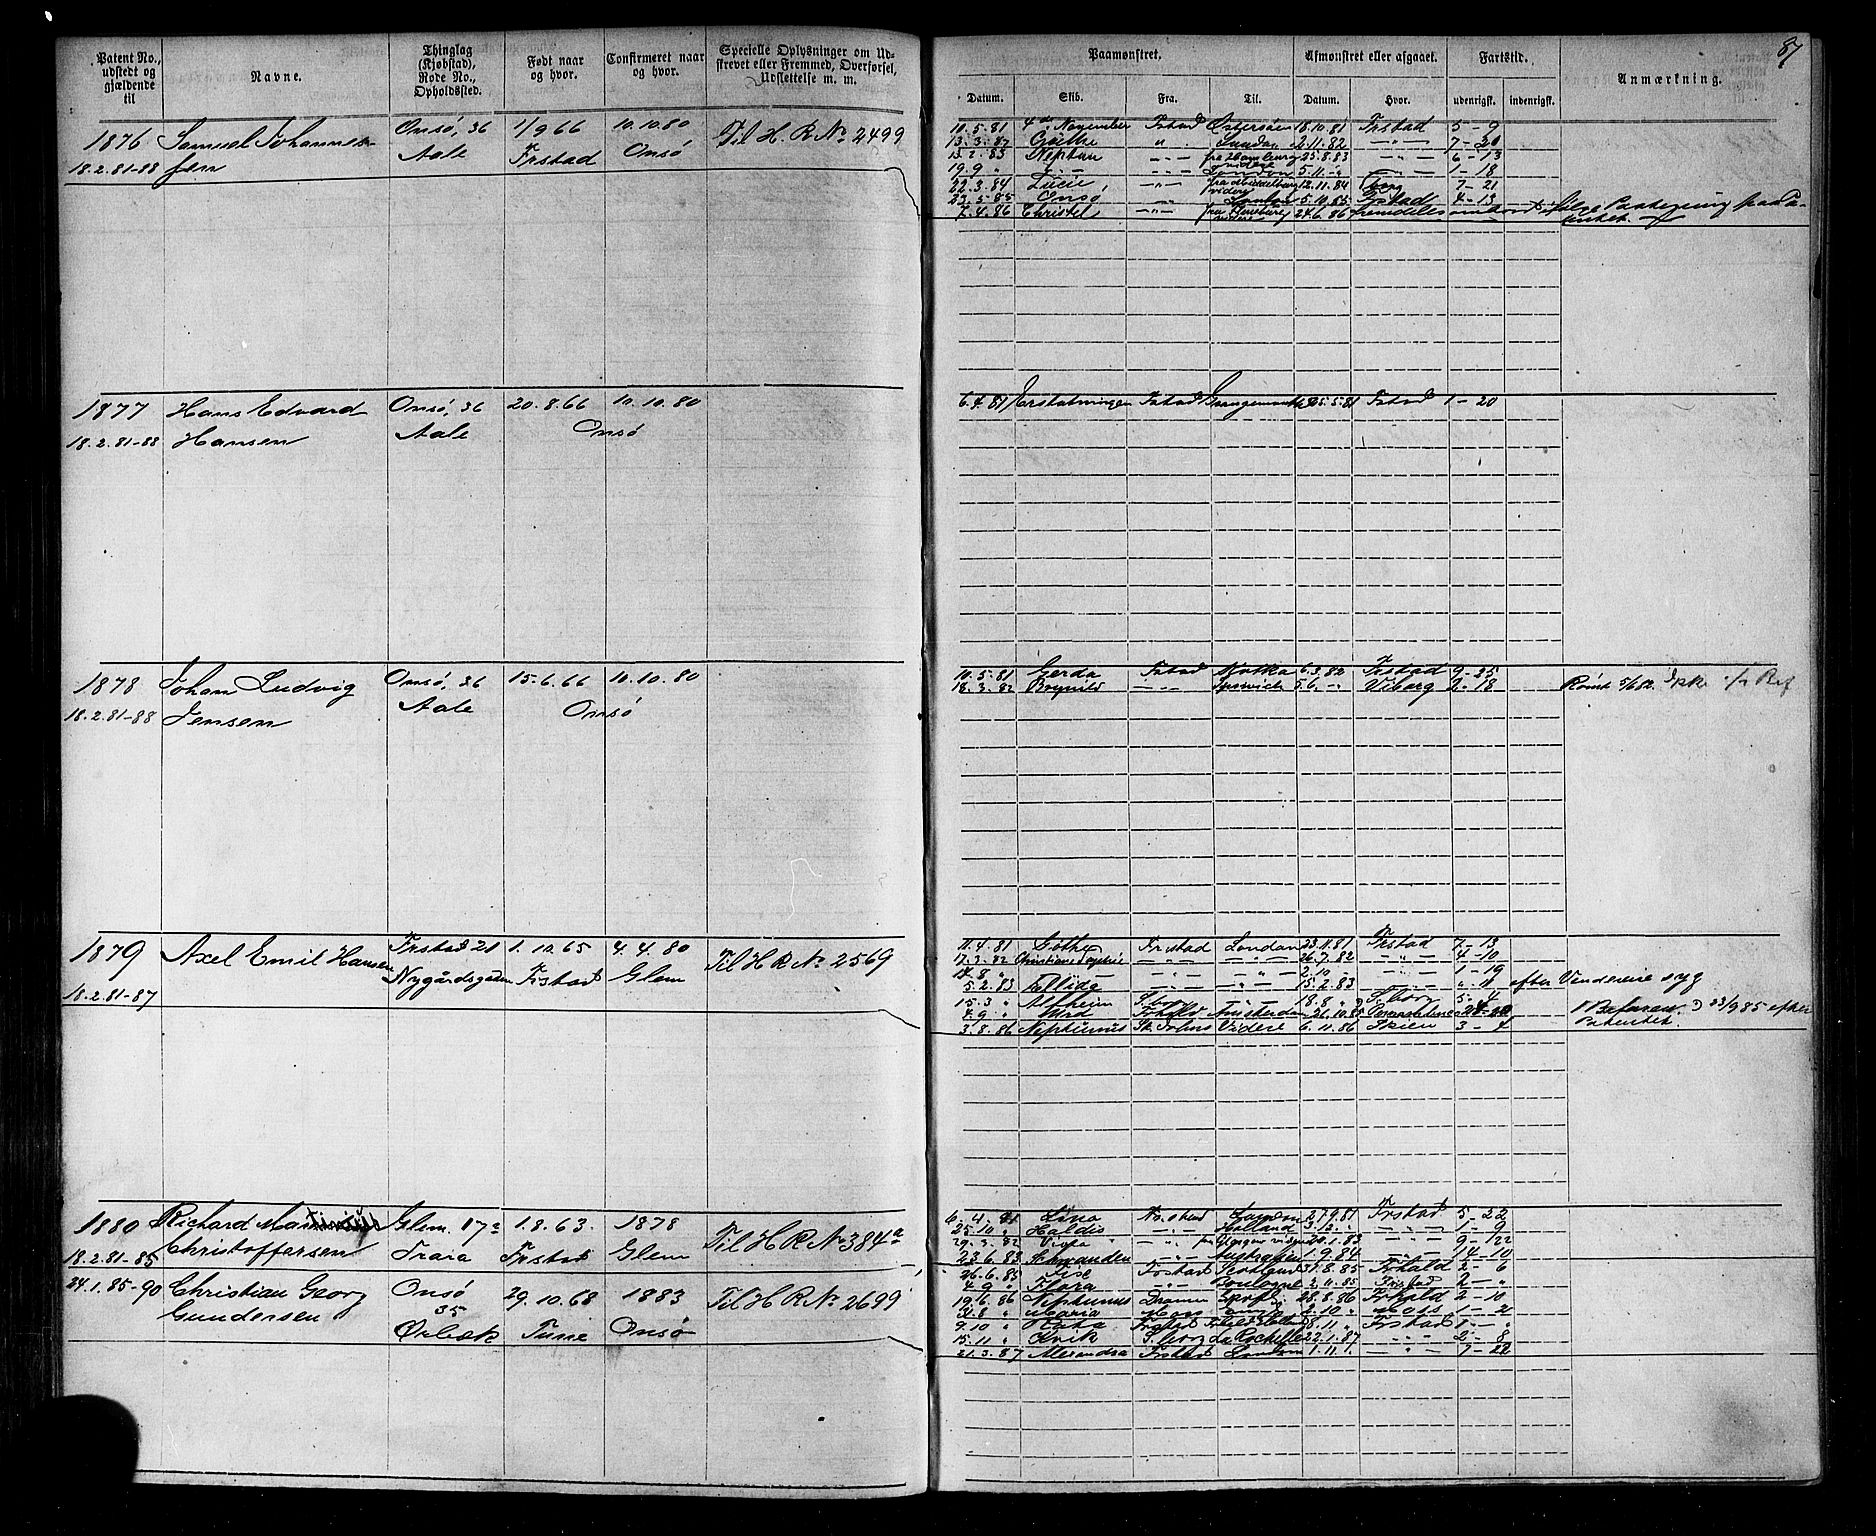 87
Patent No., udstedt og gjældende til
Navne.
Thinglag (Kjøbstad), Rode No., Opholdssted.
Født naar og hvor.
Confirmeret naar og hvor.
Specielle Oplysninger om Udskrevet eller Fremmed, Overførsel, Udslettelse m. m.
Paamønstret.
Afmønstret eller afgaaet.
Fartstid.
Anmærkning.
Datum. Skib. Fra. Til. Datum. Hvor. udenrigsk. indenrigsk.
1876 Samuel Johannes- Onsö, 36 1/9 66 10.10.80 Til H. R No 2499
18.2.81-88 sen Aale Frstad Onsö
10.5.81 4de November Frstad Østersöen 18.10.81 Frstad 5-9
Göthe " London 12.11.82 -"- 7-20
13.2.83 Neptun -"- fra Hamburg videre 25.8.83 -"- 6-13
19.9 " -"- London 5.11 -"- 1-18
22.3.84 Lucie -"- fra Middelburg videre 12.11.84 7-21
23.5.85 Onsö -"- London 5.10.85 Frstad 4-13
7.4.86 Christel -"- 24.6.86 fremdeles ombord
1877 Hans Edvard Onsö, 36 20.8.66 10.10.80
18.2.81-88 Hansen Aale Onsö
6.4.81 Frstad 25.5.81 Frstad 1-20
1878 Johan Ludvig Onsö, 36 15.6.66 10.10.80
18.2.81-88 Jensen Aale Onsö
10.5.81 Gerda Frstad Kotka 6.3.82 Frstad 9-25
18.3.82 -"- Ipswich 5.6 -"- Viborg 2-18 Römt 5/6 82. Ikke
1879 Axel Emil Hansen Frstad 21 1.10.65 4.4.80 Til H R No 2569
18.2.81-87 Nygårdsgaden Frstad Glem
11.4.81 Göthe Frstad London 23.11.81 Frstad 7-13
17.3.82 -"- -"- 26.7.82 -"- 4-10
14.8 " -"- -"- 2.10 -"- 1-19
5.2.83 Ellida -"- -"- 15.2.83 -"- "-11 efter Vendereise syg
15.3 " S.borg -"- 18.8 " S.borg 5-4
4.9 " Amsterdam 21.10.85 Befaren 23/9 85 efter
Patentet.
3.8.86 Neptunus St Johns Videre 6.11.86 Skien 3-4
1880 Richard Martinius Glem. 17a 1.8.63. 1878 Til H R No 384a
18.2.81-85 Christoffersen Trara Frstad Glem
Lina London 27.9.81 Frstad 5-22
25.10 " Haldis -"- Holland 3.12 -"- 1-9
29.3.82 -"- 20.1.83 -"- 9-22
23.6.83 -"- Australien 1.9.84 -"- 14-10
24.1.85-90 Christian Georg Onsö 29.10.68 1883 Til H R No 2699
Gundersen 35
Ørbæk Tune Onsö
26.6.85 Frstad 31.8.85 Frhald 2-6
4.9 " Flora -"- Boulogne 2.11.85 Frstad 2-"
19.6.86 Neptunus Dramm 28.8.86 Frhald 2-10
31.8 " Maria Moss 2.10 " Moss 1-2
9.10 " Frstad 8.11 " Frstad 1-"
15.11 " Kvik S.borg La Rochelle 22.1.87 -"- 2-8
21.3.87 Alexandra Frstad London 1.11 -"- 7-22